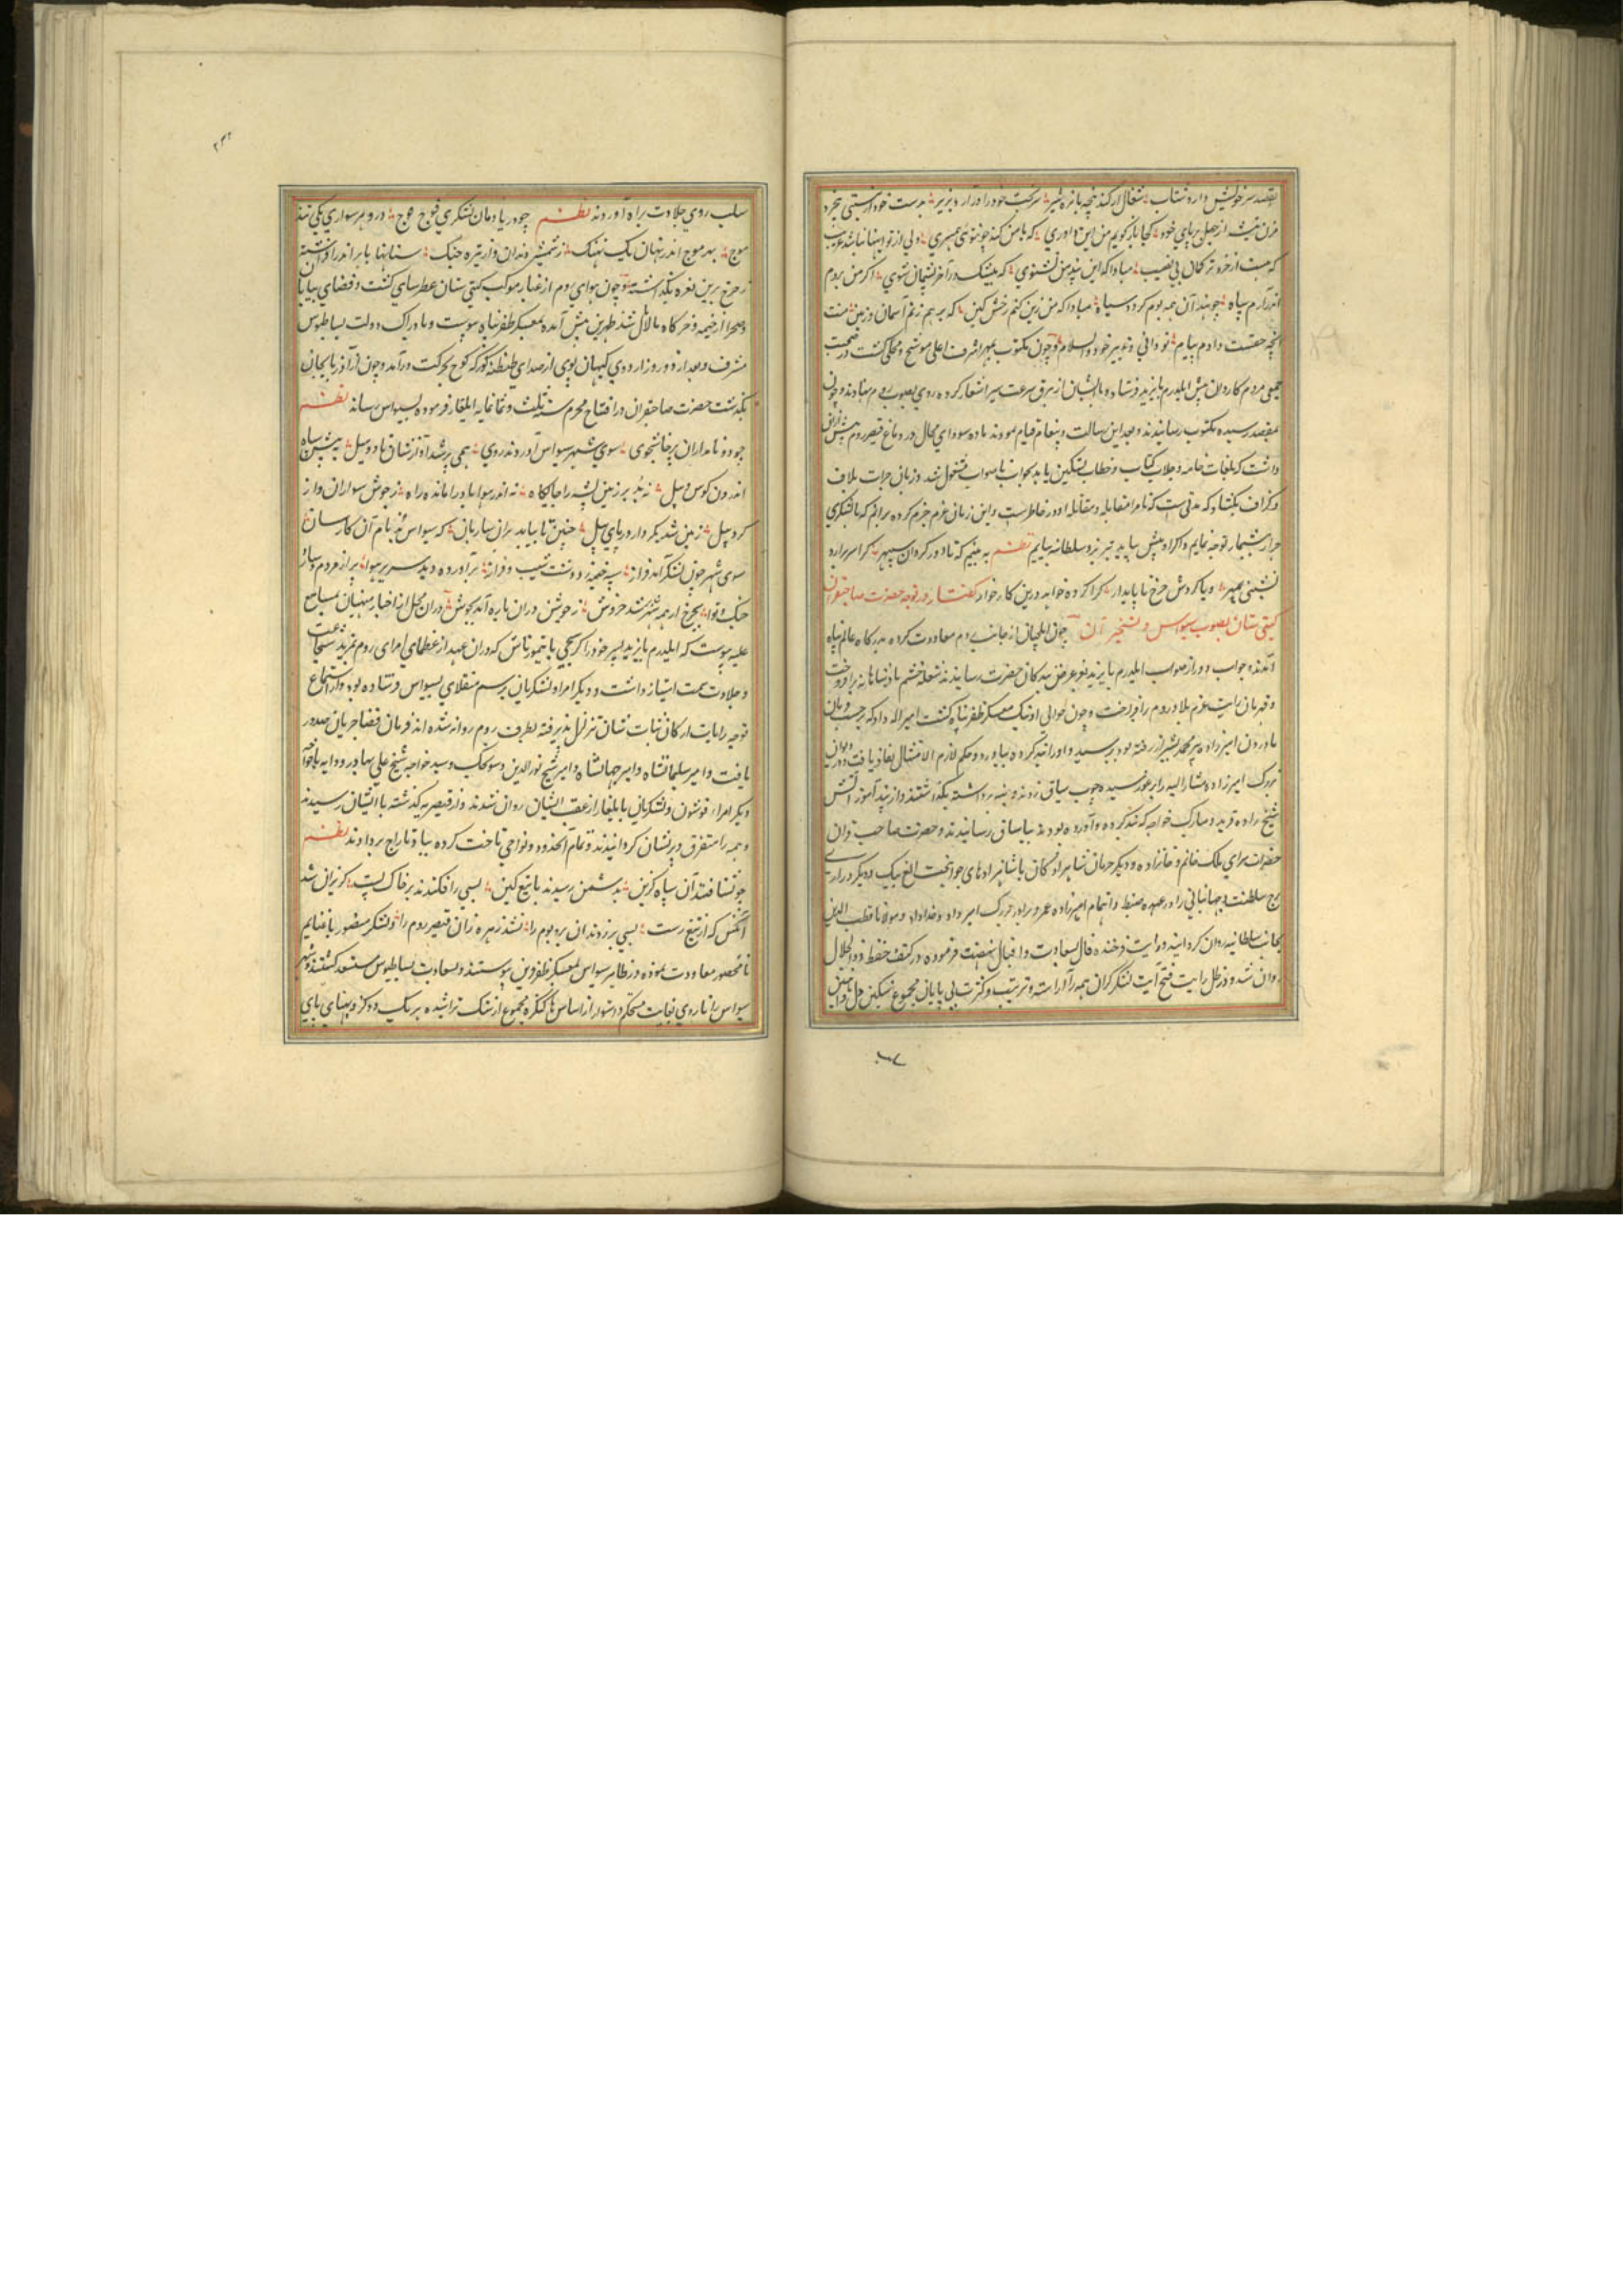 بقصد سر خویش دارد شتاب شغال ار کند پنجه با نره شیر بدست خود از نیستی بیخ خود
مزن تیشه از جهل بر پای خود کجا باز گویم من این داوری که با من کند چون توئی همسری ولی از تو اینها نباشد غریب
که هست از خرد ترکمان بی نصیب مبادا که این پند من نشنوی که بیشک در آخر پشیمان شوی اگر من بروم
اندر آرم سپاه چو هند آن همه بوم گردد سیاه مبادا که من زین کنم رخش کین که بر هم زنم آسمان و زمین منت
آنچه حقست دادم پیام تو دانی و تدبیر خود والسلام و چون مکتوب بمهر اشرف اعلی موشح و محلی گشت در صحبت
جمعی مردم کاردان پیش ایلدرم بایزید فرستاده با ایشان از برق سرعت سیر استعار کرده روی بصوب روم نهادند و چون
بمقصد رسیده مکتوب رسانیدند و بعد این رسالت و پیغام قیام نمودند باده سودای محال در دماغ قیصر روم
داشت که بلغات خامه و جلاب کتاب و خطاب تسکین یابد بجواب ناصواب مشغول شد و زبان جرات بلاف
و گزاف بگشاد که مدتی ست که مرا مقابله و مقاتله او در خاطرست و این زمان عزم جزم کرده برانم که با لشکری
جرار بیشمار توجه نمایم و اگر او پیش نیاید تبریز و سلطانیه بیایم نظم به بینیم که تا دور گردان سپهر کرا سر برارد
ز کین و بمهر ویا گردش چرخ ناپایدار کرا کرده خواهد درین کار خوار گفتار در توجه حضرت صاحبقران
گیتی ستان بصوب سیواس و تسخیر آن چون ایلچیان از جانب روم معاودت کرده بدرگاه عالم پناه
آمدند و جواب دور از صواب ایلدرم بایزید بعرض بندگان حضرت رسانیدند شعله خشم پادشاهانه برافروخت
و قهرمان رایت عزم بلاد روم را افراخت و چون حوالی اونیک معسکر ظفر پناه گشت امیر اله داد که بر حسب فرمان
بآوردن امیرزاده پیر محمد بشیراز رفته بود برسید و او را بند کرده بیاورد و حکم لازم الامتثال نفاذ یافت و دیوان
بزرگ امیرزاده مشارالیه را پرغو پرسیده چوب یاساق زدند و بند برداشته بگذاشتند و از بدآموزانش
شیخ زاده فرید و مبارک خواجه که بند کرده و آورده بودند بیاساق رسانیدند و حضرت صاحب قران
حضرات سرای ملک خانم و خانزاده و دیگر حرمان شاهزادگان با شاهزادهای جوانبخت الغ بیک و دیگر دراری
برج سلطنت و جهانبانی را در عهده ضبط و اهتمام امیرزاده عمر و برادر بزرگ امیر داد خداداد و مولانا قطب الدین
بجانب سلطانیه روان گردانیدند و رایت فرخنده فال بسعادت و اقبال نهضت فرموده در کنف حفظ ذو الجلال
روان شد و در ظل رایت فتح آیت لشکر گران همه آراسته و ترتیب و کثرت بی پایان مجموع
سلب روی جلادت براه آوردند نظم چو دریا دمان لشکری فوج موج در و هر سواری یکی تند
موج بهر موج اندر نهان یک نهنگ ز شمشیر دندان و از نیزه چنگ سنانها بابر اندر افراشته
ز چرخ برین نعره بگذاشته و چون هوای روم از غبار موکب گیتی ستان عطرسای گشت و فضای بیابان
و صحرا از خیمه و خرگاه مالامال شد طهرتن پیش آمده بمعسکر ظفر پناه پیوست و بادراک دولت بساط بوس
مشرف و بعد از دو روز اردوی کیهان پوی از صدای طنطنه کورکه کوچ بحرکت درآمد و چون از آذربایجان
بگذشت حضرت صاحبقران در افتتاح محرم سنه ثلث و ثمانمایه ایلغار فرموده بسیواس رساند نظم
چو دو نامداران پرخاشجوی سوی شهر سیواس آوردند روی همی بر شد آواز شان تا دو میل به پیش سپاه
اندرون کوس و پیل نه بد بر زمین پشه را جایگاه نه اندر هوا باد را مانده راه ز جوش سواران و از
گرد پیل زمین شد بکردار دریای نیل چنین تا بیامد بران سارسان که سیواس بد نام آن کارسان
سوی شهر چون لشکر آمد فراز سپه خیمه زد دشت شیب و فراز برآورده دید سر بر هوا پر از مردم و ساز
جنگ و نوا بچرخ از همه شهر شد خروش ز خویش دران باره آمد بجوش دران محل از اخبار منهیان مسامع
علیه پیوست که ایلدرم بایزید پسر خود را کرشجی با تیمورتاش که دران عهد از عظمای امرای روم بمزید شجاعت
و جلادت سمت امتیاز داشت و دیگر امرا و لشکریان برسم منقلای بسیواس فرستاده بود و از استماع
توجه رایات ارکان ثبات شان تزلزل پذیرفته بطرف روم روانه شده اند فرمان قضا جریان صدور
یافت و امیر سلیمانشاه و امیر جهانشاه و امیر شیخ نورالدین و سونجک و سید خواجه شیخ علی بهادر و دانه خواجه
و دیگر امراء قوشون و لشکریان بایلغار از عقب ایشان روان شدند و از قیصریه گذشته با ایشان رسیدند
و همه را متفرق و پریشان گردانیدند و تمام آنحدود و نواحی تاخت کرده بباد تاراج بردادند نظم
چو بشتافتند آن سپاه گزین بدشمن رسیدند با تیغ کین بسی را فکندند بر خاک پست گریزان شد
آنکس که از تیغ رست بسی بر زدند آن بر و بوم را بشد زهره زان قیصر روم را و لشکر منصور با غنایم
نامحصور معاودت نموده در ظاهر سیواس بمعسکر ظفر قرین پیوستند و بسعادت بساط بوس مستسعد گشتند و شهر
سیواس را باروی بغایت محکم و استوار از اساس تا کنگره مجموع از سنگ تراشیده هر سنگ دو گز و پهنای پای